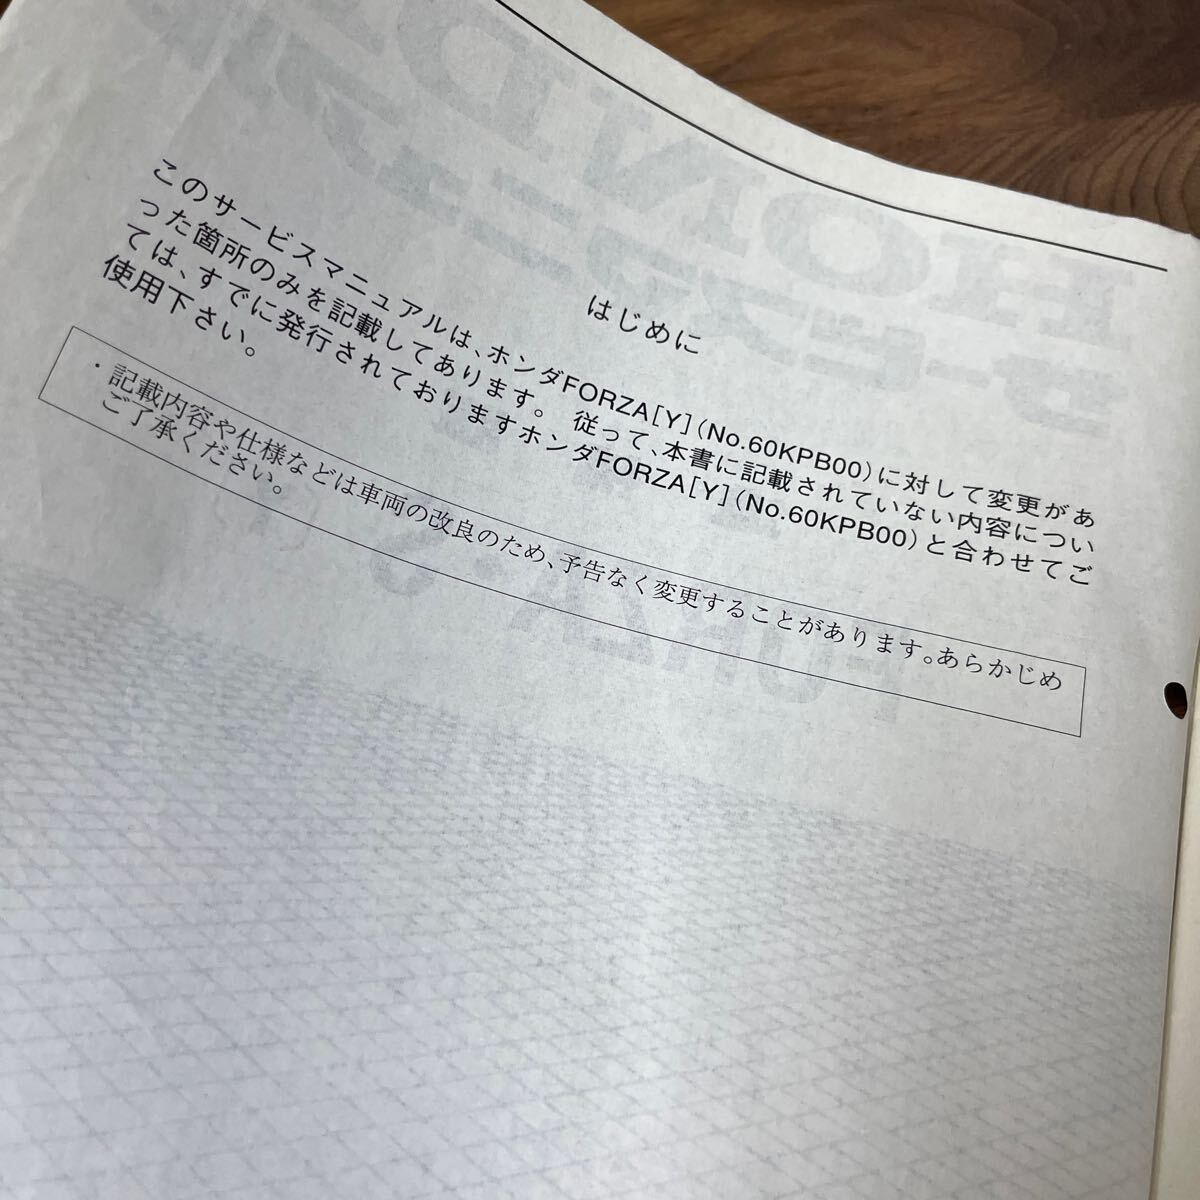 はじめに
このサービスマニュアルは、ホンダFORZA[Y](No.60KPB00)に対して変更があ
った箇所のみを記載してあります。 従って、本書に記載されていない内容につい
ては、すでに発行されておりますホンダFORZA[Y](No.60KPB00)と合わせてご
使用下さい。
・記載内容や仕様などは車両の改良のため、予告なく変更することがあります。あらかじめ
ご了承ください。